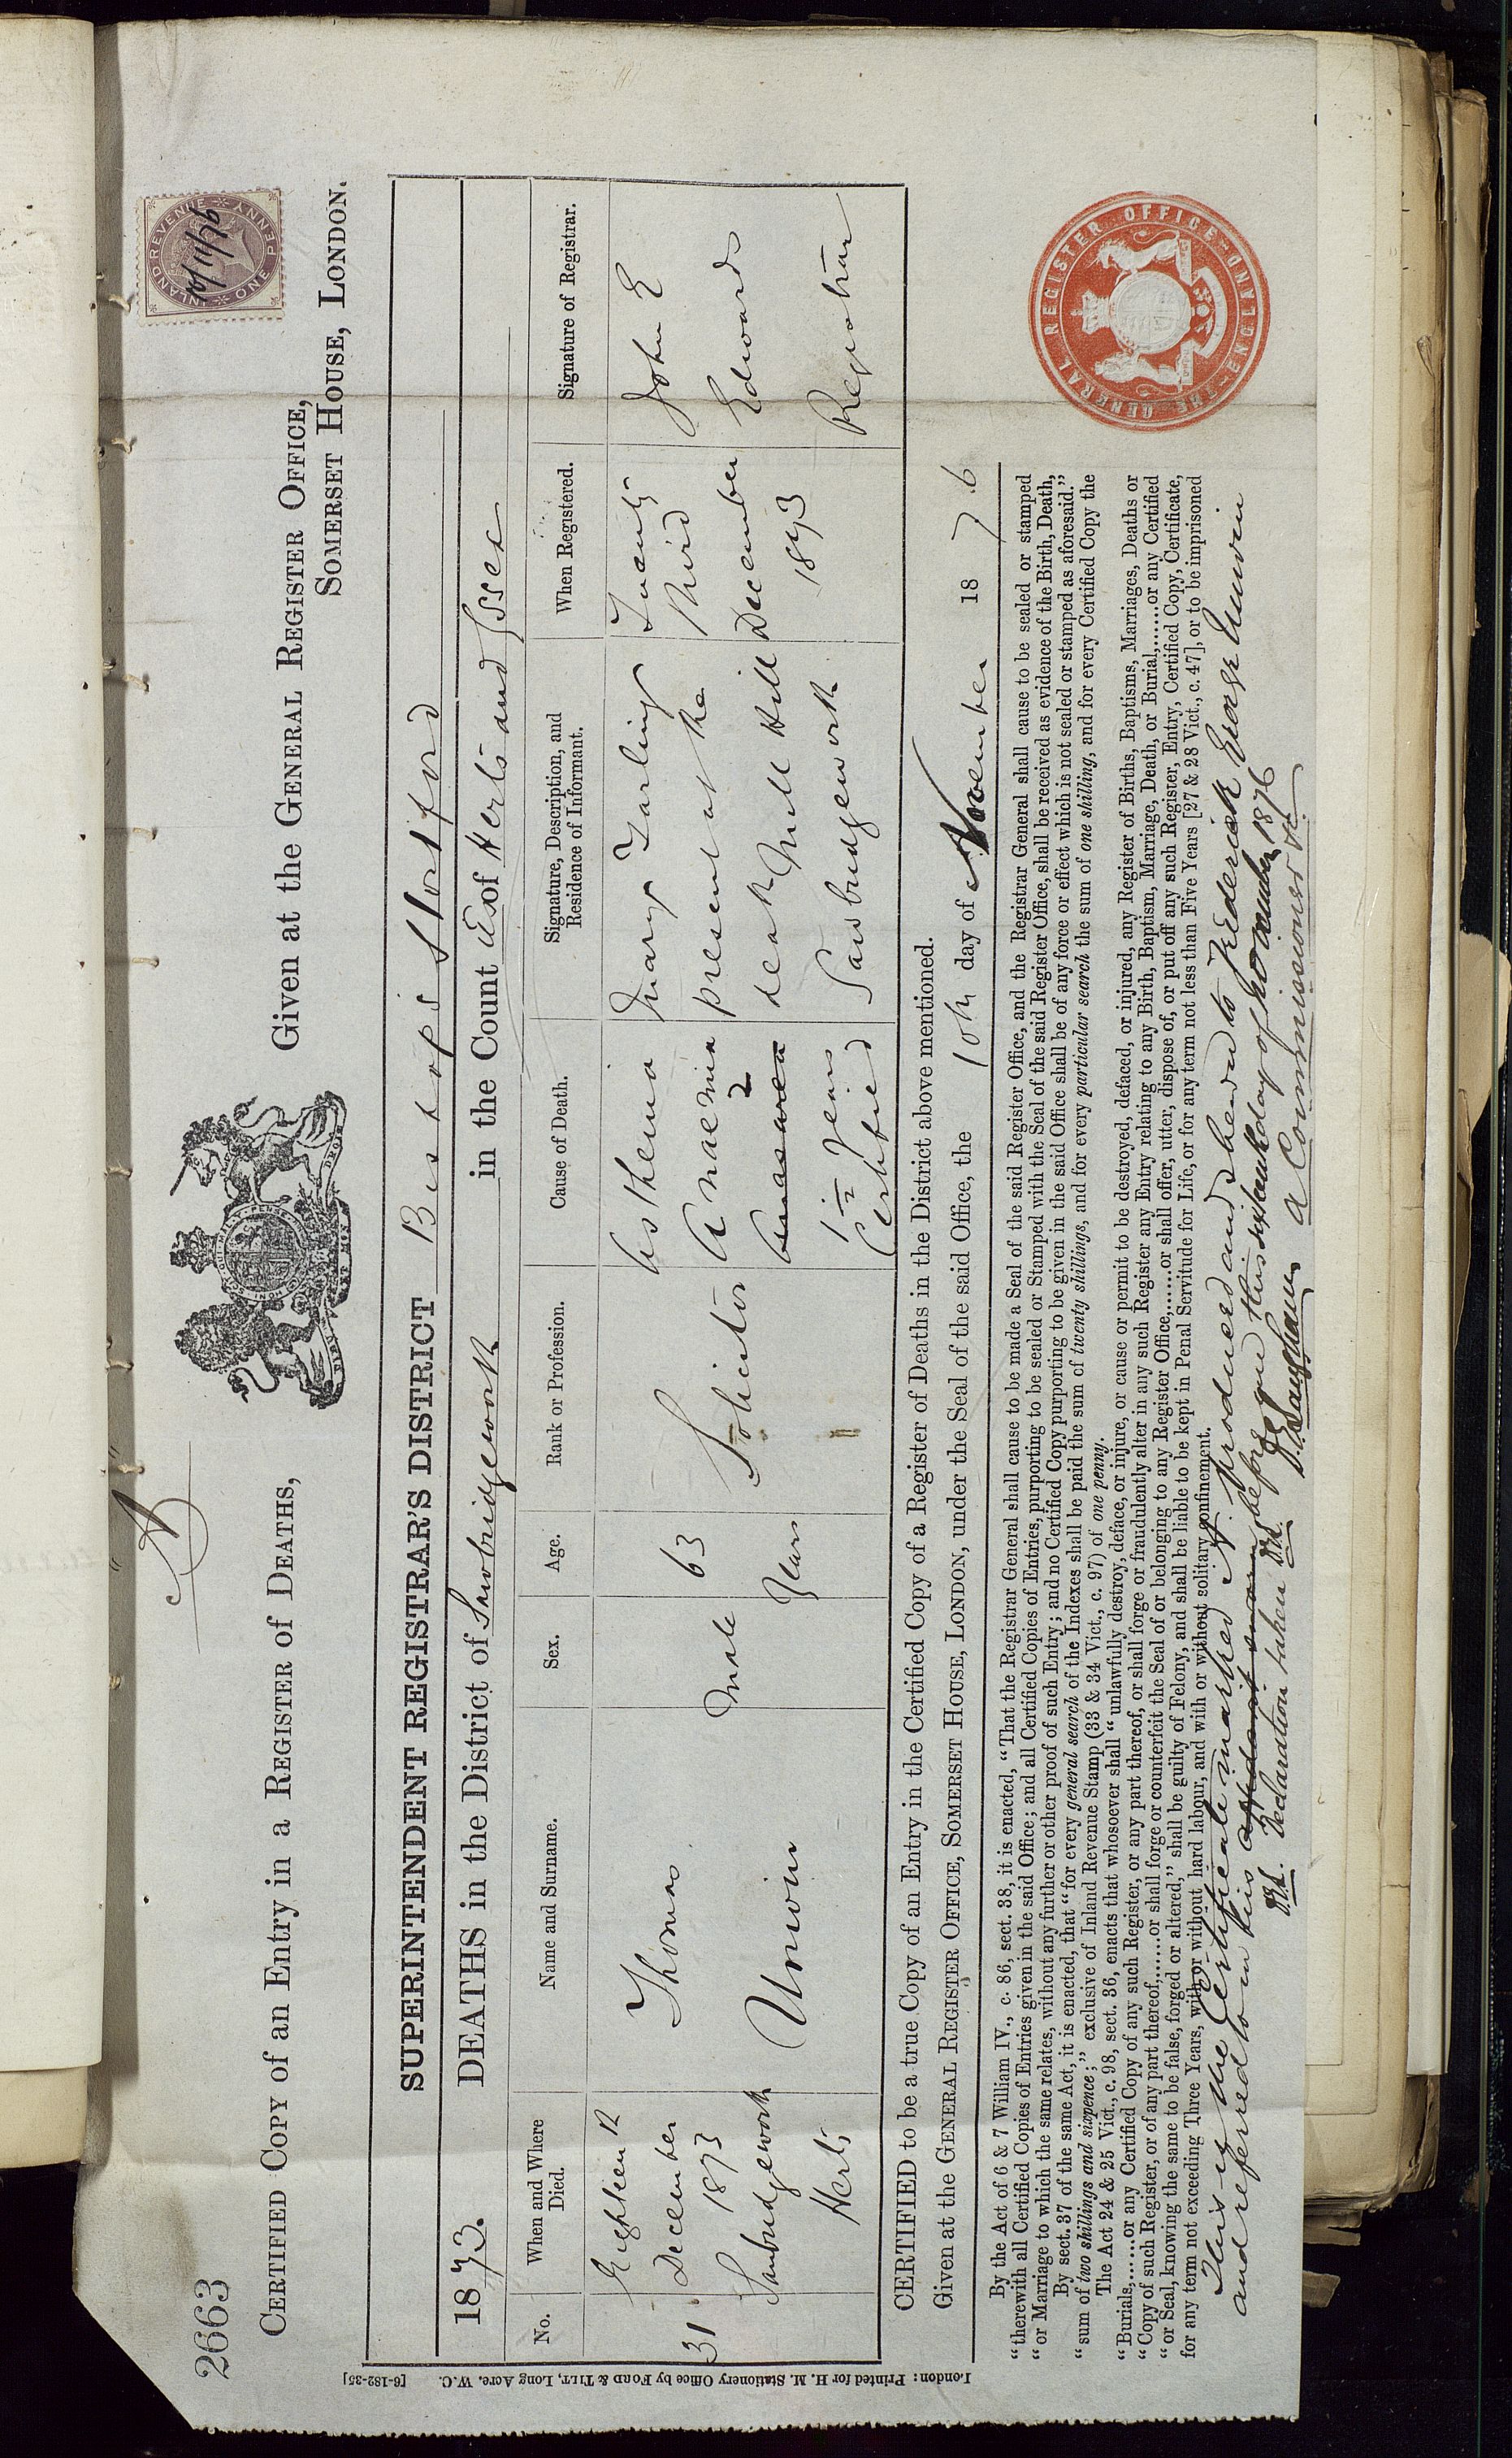 2663
A
INLAND REVENUE
ONE PENNY
10/11/76
CERTIFIED COPY of an Entry in a REGISTER OF DEATHS,
Given at the GENERAL REGISTER OFFICE,
SOMERSET HOUSE, LONDON.
HONI SOIT QUI MAL Y PENSE
DIEU ET MON DROIT
SUPERINTENDENT REGISTRAR'S DISTRICT Bishops Stortford
1873. DEATHS in the District of Sawbridgeworth in the Count ies of Herts and Essex
No.
When and Where
Died.
Name and Surname.
Sex.
Age.
Rank or Profession.
Cause of Death.
Signature, Description, and
Residence of Informant.
When Registered.
Signature of Registrar.
31
Eighteenth
December
1873
Sawbridgeworth
Herts
Thomas
Unwin
Male
63
Years
Solicitor
Asthenia
Anaemia
2
Anasarca
1½ Years
Certified
Mary Tarling
present at the
death Mill Hill
Sawbridgeworth
Twenty
third
December
1873
John E
Edwards
Registrar
CERTIFIED to be a true Copy of an Entry in the Certified Copy of a Register of Deaths in the District above mentioned.
Given at the GENERAL REGISTER OFFICE, SOMERSET HOUSE, LONDON, under the Seal of the said Office, the 10th day of November 1876
By the Act of 6 & 7 William IV., c. 86, sect. 38, it is enacted, "That the Registrar General shall cause to be made a Seal of the said Register Office, and the Registrar General shall cause to be sealed or stamped
"therewith all Certified Copies of Entries given in the said Office; and all Certified Copies of Entries, purporting to be sealed or Stamped with the Seal of the said Register Office, shall be received as evidence of the Birth, Death,
"or Marriage to which the same relates, without any further or other proof of such Entry; and no Certified Copy purporting to be given in the said Office shall be of any force or effect which is not sealed or stamped as aforesaid."
By sect. 37 of the same Act, it is enacted, that "for every general search of the Indexes shall be paid the sum of twenty shillings, and for every particular search the sum of one shilling, and for every Certified Copy the
"sum of two shillings and sixpence;" exclusive of Inland Revenue Stamp (33 & 34 Vict., c. 97) of one penny.
The Act 24 & 25 Vict., c. 98, sect. 36, enacts that whosoever shall "unlawfully destroy, deface, or injure, or cause or permit to be destroyed, defaced, or injured, any Register of Births, Baptisms, Marriages, Deaths or
"Burials,......or any Certified Copy of any such Register, or any part thereof, or shall forge or fraudulently alter in any such Register any Entry relating to any Birth, Baptism, Marriage, Death, or Burial,......or any Certified
"Copy of such Register, or of any part thereof,......or shall forge or counterfeit the Seal of or belonging to any Register Office,......or shall offer, utter, dispose of, or put off any such Register, Entry, Certified Copy, Certificate,
"or Seal, knowing the same to be false, forged or altered," shall be guilty of Felony, and shall be liable to be kept in Penal Servitude for Life, or for any term not less than Five Years [27 & 28 Vict., c. 47], or to be imprisoned
for any term not exceeding Three Years, with or without hard labour, and with or without solitary confinement.
This is the Certificate marked A. produced and shewn to Frederick George Unwin
and referred to in his affidavit sworn before me this sixteenth day of November 1876
Declaration taken
A Commissioner &c.
THE GENERAL REGISTER OFFICE ENGLAND
London: Printed for H. M. Stationery Office by FORD & TILT, Long Acre, W.C. [6-182-35]